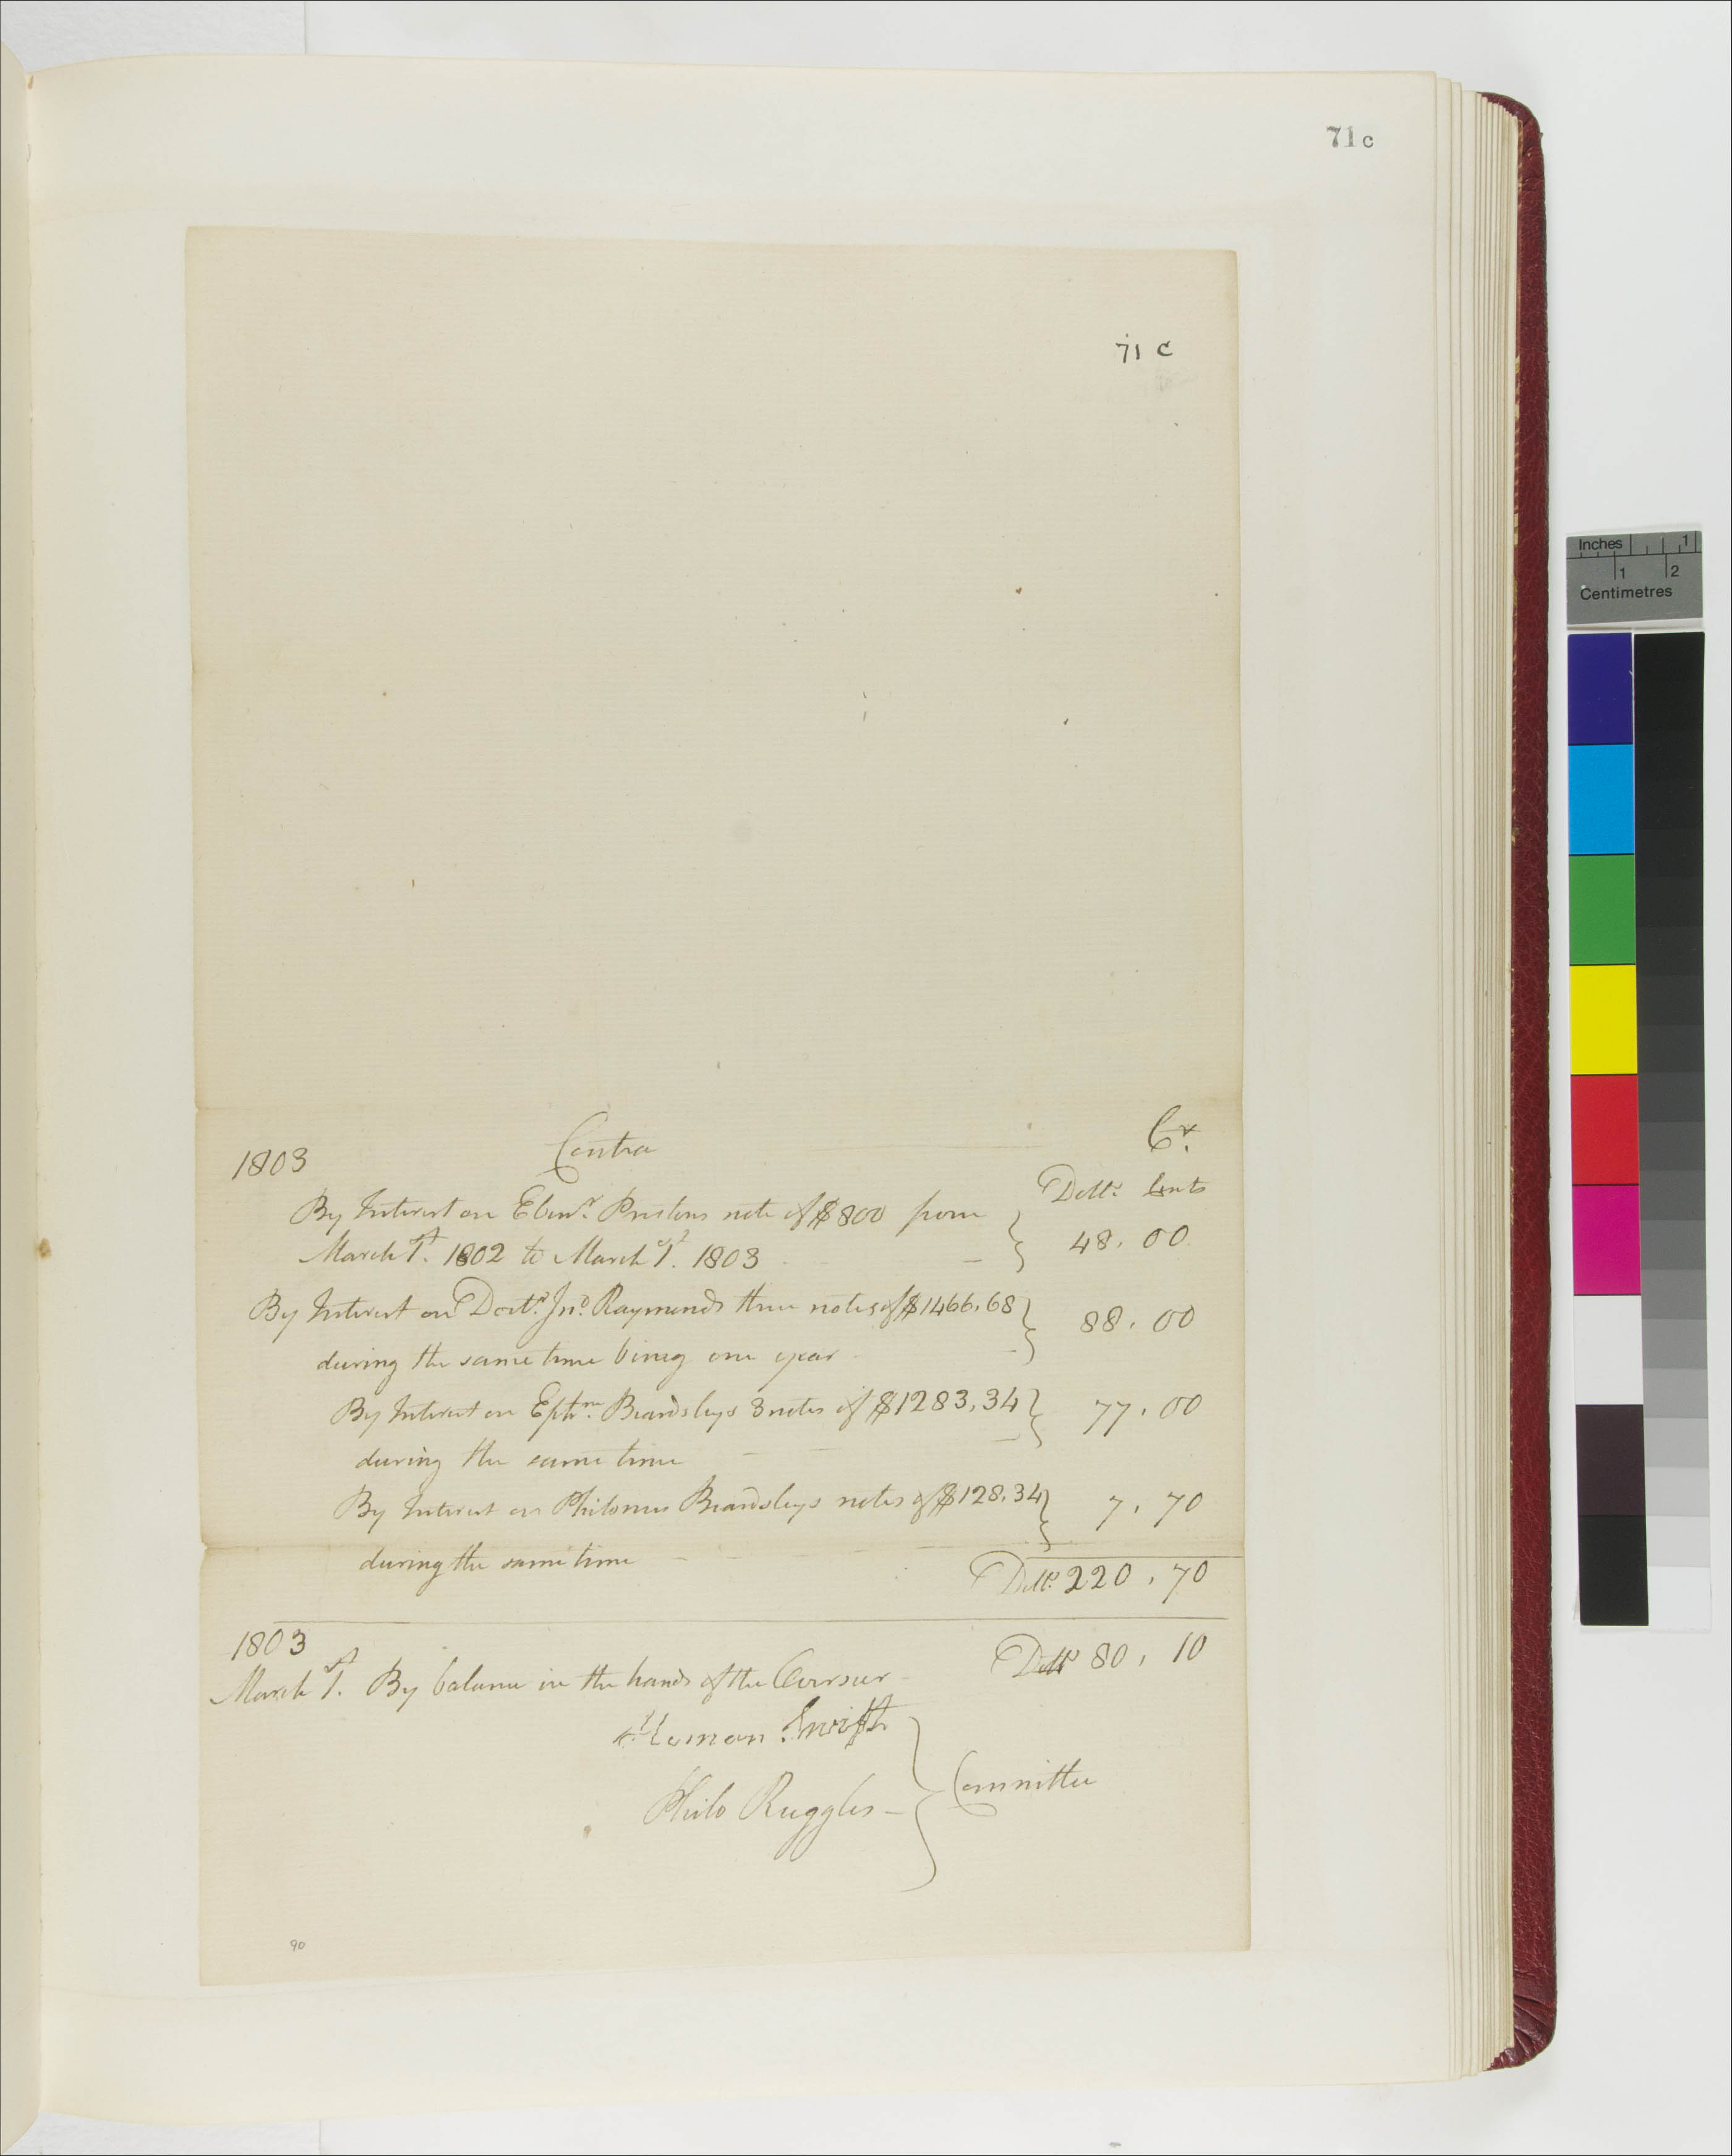 71c
71 c
1803 Contra Cr.
Dolls. Cents
By Interest on Ebenr. Prestons note of $800 from
March 1st. 1802 to March 1st. 1803 48.00
By Interest on Doctr. Jno. Raymonds three notes of $1466,68
during the same time being one year 88.00
By Interest on Ephm. Beardsleys 3 notes of $1283,34 77.00
during the same time
By Interest on Philomus Beardsleys notes of $128.34 7.70
during the same time
Dolls. 220.70
1803
March 1st. By balance in the hands of the Overseer Dolls 80,10
Heman Swift
Philo Ruggles - Committee
90
Inches 1
1 2
Centimetres